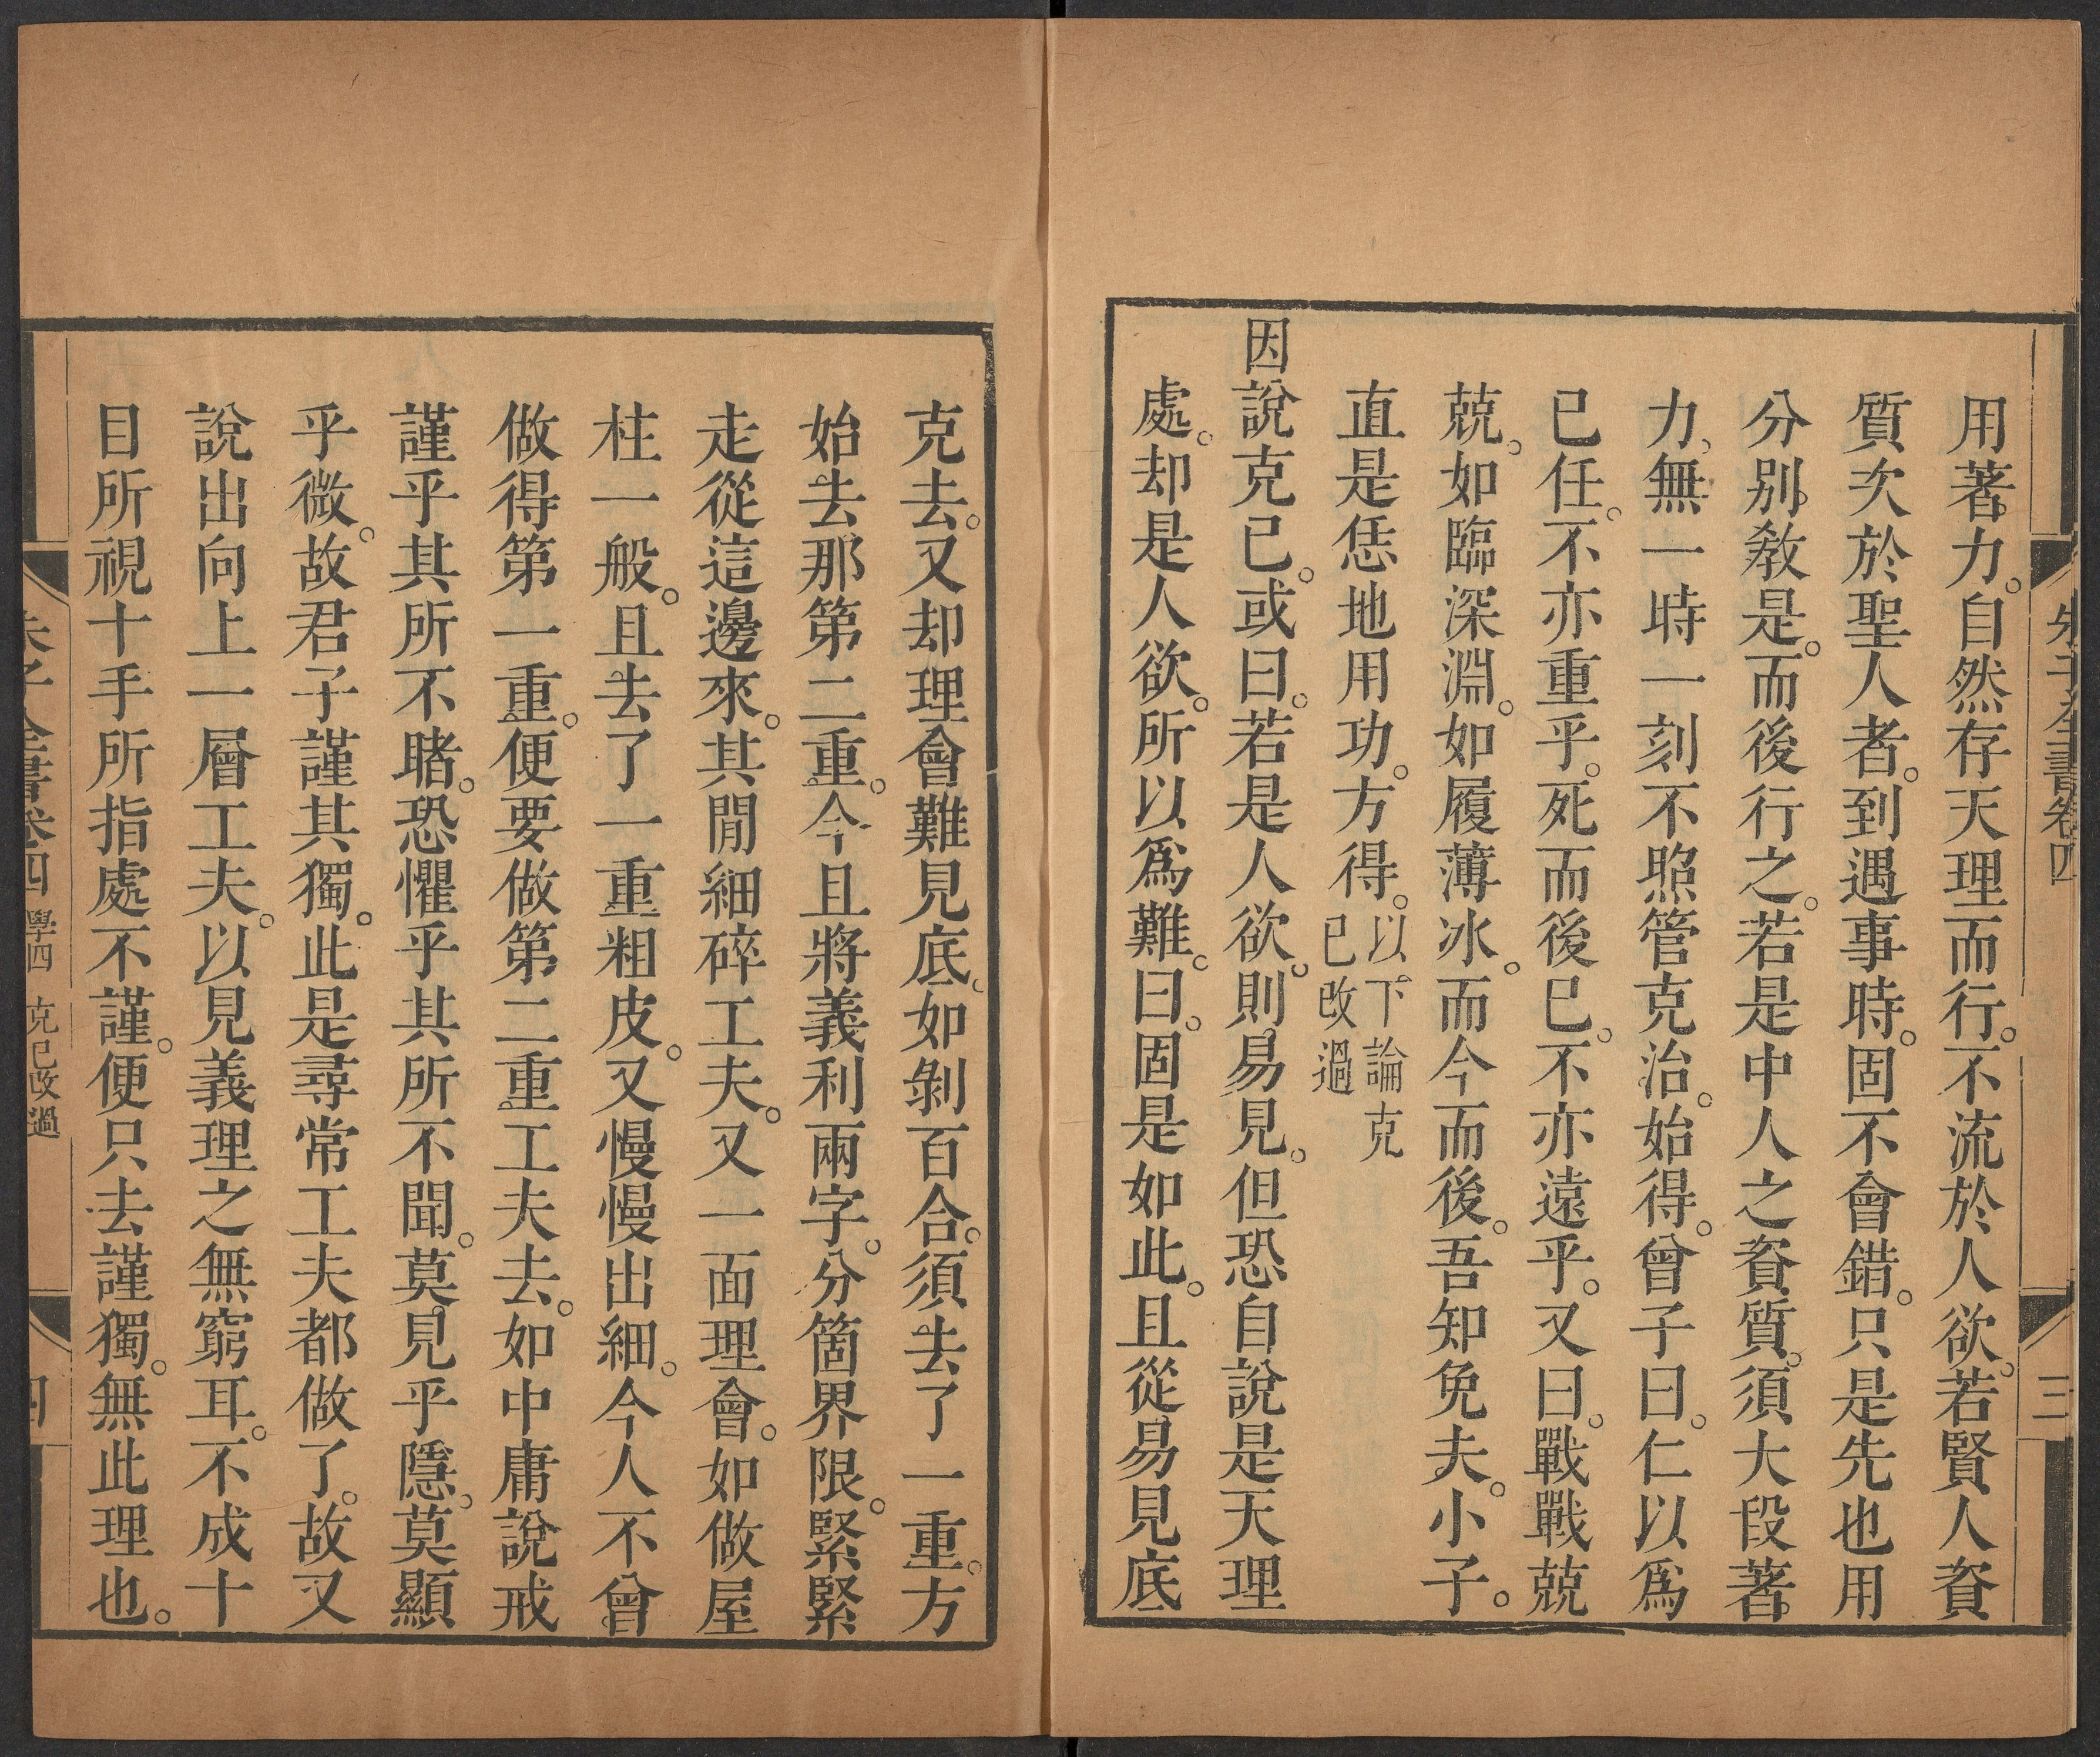 朱子全書卷四
三
用著力。自然存天理而行。不流於人欲。若賢人資
質次於聖人者。到遇事時。固不會錯。只是先也用
分別敎是。而後行之。若是中人之資質。須大段著
力。無一時一刻不照管克治。始得。曾子曰。仁以爲
已任。不亦重乎。死而後已。不亦遠乎。又曰。戰戰兢
兢。如臨深淵。如履薄冰。而今而後。吾知免夫。小子。
直是恁地用功。方得。以下論克
已改過
因說克已。或曰。若是人欲。則易見。但恐自說是天理
處。却是人欲。所以爲難。曰。固是如此。且從易見底
克去。又却理會難見底。如剝百合。須去了一重。方
始去那第二重。今且將義利兩字。分箇界限。緊緊
走從這邊來。其閒細碎工夫。又一面理會。如做屋
柱一般。且去了一重粗皮。又慢慢出細。今人不曾
做得第一重。便要做第二重工夫去。如中庸說戒
謹乎其所不睹。恐懼乎其所不聞。莫見乎隱。莫顯
乎微。故君子謹其獨。此是尋常工夫都做了。故又
說出向上一層工夫。以見義理之無窮耳。不成十
目所視十手所指處不謹。便只去謹獨。無此理也。
朱子全書卷四 學四 克已改過
四